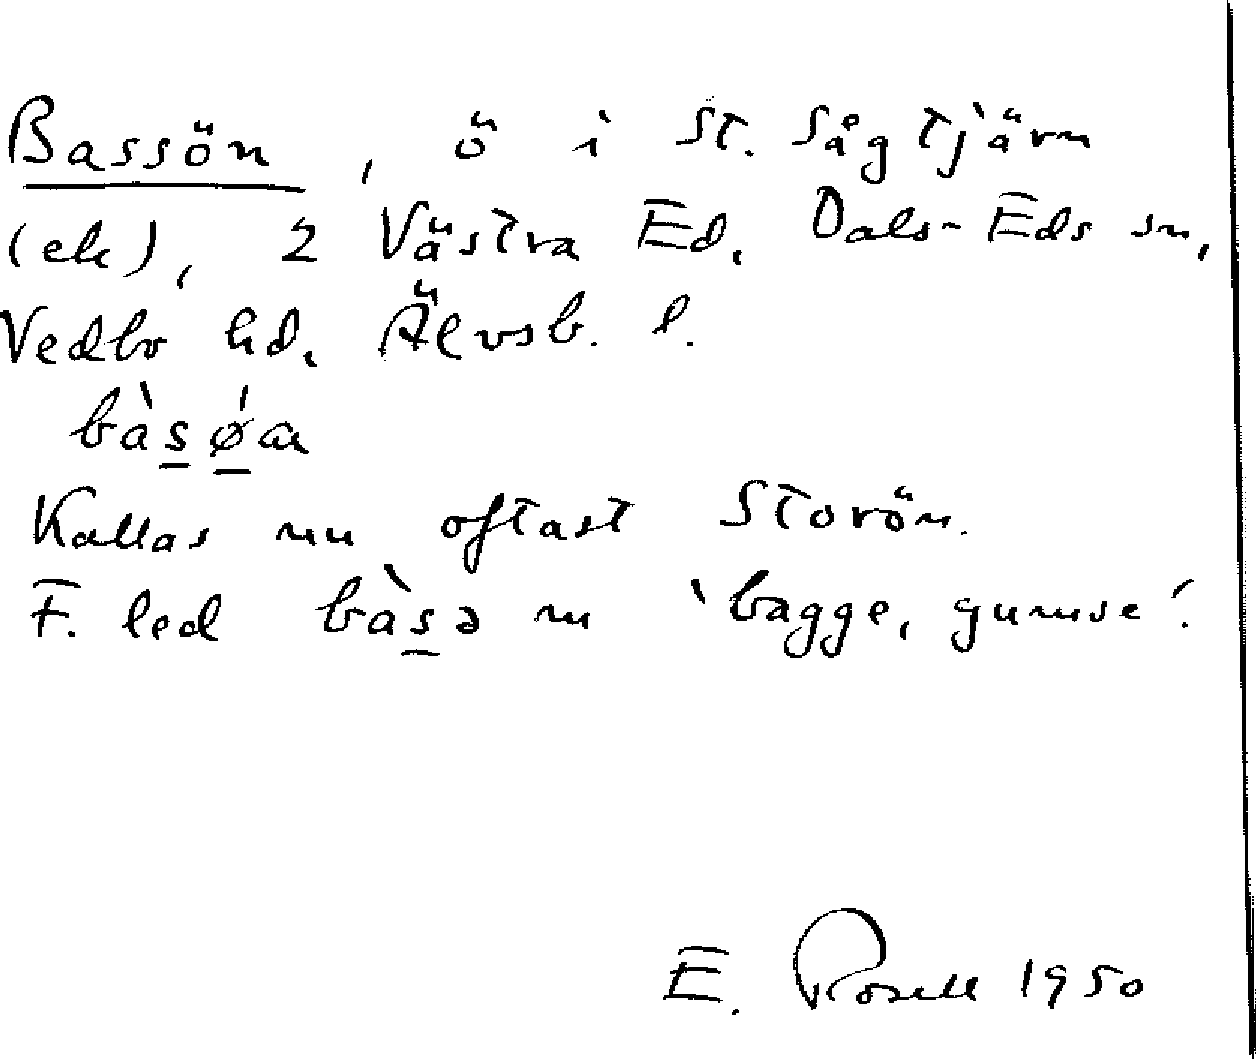 Bassön, ö i St. Sågtjärn
(ek), 2 Västra Ed, Dals-Eds sn,
Vedbo hd, Älvsb. l.
bàs̲ǿ̲a
Kallas nu oftast Storön.
F. led bàs̲ə m 'bagge, gumse'.
E. Rosell 1950